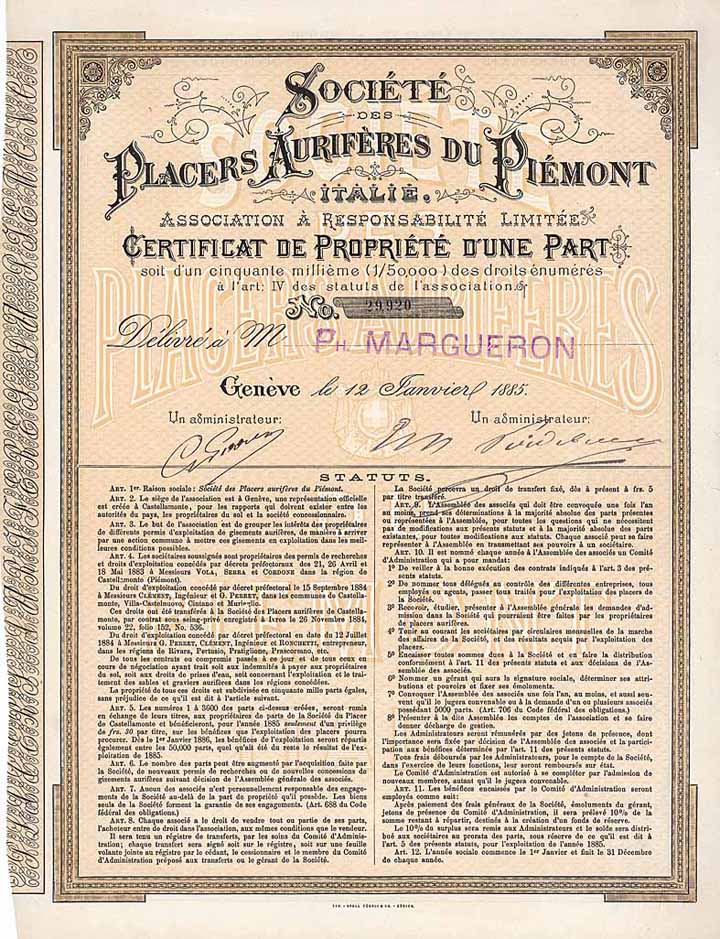 SOCIÉTÉ
DES
PLACERS AURIFÈRES DU PIÉMONT
ITALIE.
ASSOCIATION À RESPONSABILITÉ LIMITÉE
CERTIFICAT DE PROPRIÉTÉ D'UNE PART
soit d'un cinquante millième (1/50,000) des droits énumérés
à l'art: IV des statuts de l'association.
No. 29,920
Délivré à M PH. MARGUERON
Genève le 12 Janvier 1885.
Un administrateur: Un administrateur:
STATUTS.
ART. 1er. Raison sociale: Société des Placers aurifères du Piémont.
ART. 2. Le siège de l'association est à Genève, une représentation officielle
est créée à Castellamonte, pour les rapports qui doivent exister entre les
autorités du pays, les propriétaires du sol et la société concessionnaire.
ART. 3. Le but de l'association est de grouper les intérêts des propriétaires
de différents permis d'exploitation de gisements aurifères, de manière à arriver
par une action commune à mettre ces gisements en exploitation dans les meil-
leures conditions possibles.
ART. 4. Les sociétaires soussignés sont propriétaires des permis de recherches
et droits d'exploitation concédés par décrets préfectoraux des 21, 26 Avril et
18 Mai 1883 à Messieurs VOLA, SERRA et CORDONE dans la région de
Castellamonte (Piémont).
Du droit d'exploitation concédé par décret préfectoral le 15 Septembre 1884
à Messieurs CLÉMENT, Ingénieur et G. PERRET, dans les communes de Castella-
monte, Villa-Castelnuovo, Cintano et
Ces droits ont été transférés à la Société des Placers aurifères de Castella-
monte, par contrat sous seing-privé enregistré à Ivrea le 26 Novembre 1884,
volume 22, folio 152, No. 536.
Du droit d'exploitation concédé par décret préfectoral en date du 12 Juillet
1884 à Messieurs G. PERRET, CLÉMENT, Ingénieur et RONCHETTI, entrepreneur,
dans les régions de Rivara, Pertusio, Pratiglione, Prascorsano, etc.
De tous les contrats ou compromis passés à ce jour et de tous ceux en
cours de négociation ayant trait soit aux indemnités à payer aux propriétaires
du sol, soit aux droits de prises d'eau, soit concernant l'exploitation et le trai-
tement des sables et graviers aurifères dans les régions concédées.
La propriété de tous ces droits est subdivisée en cinquante mille parts égales,
sans préjudice de ce qu'il est dit à l'article suivant.
ART. 5. Les numéros 1 à 3600 des parts ci-dessus créées, seront remis
en échange de leurs titres, aux propriétaires de parts de la Société du Placer
de Castellamonte et bénéficieront, pour l'année 1885 seulement d'un privilège
de frs. 30 par titre, sur les bénéfices que l'exploitation des placers pourra
procurer. Dès le 1er Janvier 1886, les bénéfices de l'exploitation seront répartis
également entre les 50,000 parts, quel qu'ait été du reste le résultat de l'ex-
ploitation de 1885.
ART. 6. Le nombre des parts peut être augmenté par l'acquisition faite par
la Société, de nouveaux permis de recherches ou de nouvelles concessions de
gisements aurifères suivant décision de l'Assemblée générale des associés.
ART. 7. Aucun des associés n'est personnellement responsable des engage-
ments de la Société au-delà de la part de propriété qu'il possède. Les biens
seuls de la Société forment la garantie de ses engagements. (Art. 688 du Code
fédéral des obligations.)
ART. 8. Chaque associé a le droit de vendre tout ou partie de ses parts,
l'acheteur entre du droit dans l'association, aux mêmes conditions que le vendeur.
Il sera tenu un régistre de transferts, par les soins du Comité d'Adminis-
tration; chaque transfert sera signé soit sur le régistre, soit sur une feuille
volante jointe au régistre par le cédant, le cessionnaire et le membre du Comité
d'Administration préposé aux transferts ou le gérant de la Société.
La Société percevra un droit de transfert fixé, dès à présent à frs. 5
par titre transféré.
ART. 9. L'Assemblée des associés qui doit être convoquée une fois l'an
au moins, prend ses déterminations à la majorité absolue des parts présentes
ou représentées à l'Assemblée, pour toutes les questions qui ne nécessitent
pas de modifications aux présents statuts et à la majorité absolue des parts
existantes, pour toutes modifications aux statuts. Chaque associé peut se faire
représenter à l'Assemblée en transmettant ses pouvoirs à un sociétaire.
ART. 10. Il est nommé chaque année à l'Assemblée des associés un Comité
d'Administration qui a pour mandat:
1º De veiller à la bonne exécution des contrats indiqués à l'art. 3 des pré-
sents statuts.
2º De nommer tous délégués au contrôle des différentes entreprises, tous
employés ou agents, passer tous traités pour l'exploitation des placers de
la Société.
3º Recevoir, étudier, présenter à l'Assemblée générale les demandes d'ad-
mission dans la Société qui pourraient être faites par les propriétaires
de placers aurifères.
4º Tenir au courant les sociétaires par circulaires mensuelles de la marche
des affaires de la Société, et des résultats acquis par l'exploitation des
placers.
5º Encaisser toutes sommes dues à la Société et en faire la distribution
conformément à l'art. 11 des présents statuts et aux décisions de l'As-
semblée des associés.
6º Nommer un gérant qui aura la signature sociale, déterminer ses attri-
butions et pouvoirs et fixer ses émoluments.
7º Convoquer l'Assemblée des associés une fois l'an, au moins, et aussi sou-
vent qu'il le jugera convenable ou à la demande d'un ou plusieurs associés
possédant 5000 parts. (Art. 706 du Code fédéral des obligations.)
8º Présenter à la dite Assemblée les comptes de l'association et se faire
donner décharge de gestion.
Les Administrateurs seront rémunérés par des jetons de présence, dont
l'importance sera fixée par décision de l'Assemblée des associés et la partici-
pation aux bénéfices déterminés par l'art. 11 des présents statuts.
Tous frais déboursés par les Administrateurs, pour le compte de la Société,
dans l'exercice de leurs fonctions, leur seront remboursés sur état.
Le Comité d'Administration est autorisé à se compléter par l'admission de
nouveaux membres, autant qu'il le jugera convenable.
ART. 11. Les bénéfices encaissés par le Comité d'Administration seront
employés comme suit:
Après paiement des frais généraux de la Société, émoluments du gérant,
jetons de présence du Comité d'Administration, il sera prélevé 10% de la
somme restant à répartir, destinés à la création d'un fonds de réserve.
Le 10% du surplus sera remis aux Administrateurs et le solde sera distri-
bué aux sociétaires au prorata des parts, sous réserve de ce qu'il est dit à
l'art. 5 des présents statuts, pour l'exploitation de l'année 1885.
ART. 12. L'année sociale commence le 1er Janvier et finit le 31 Décembre
de chaque année.